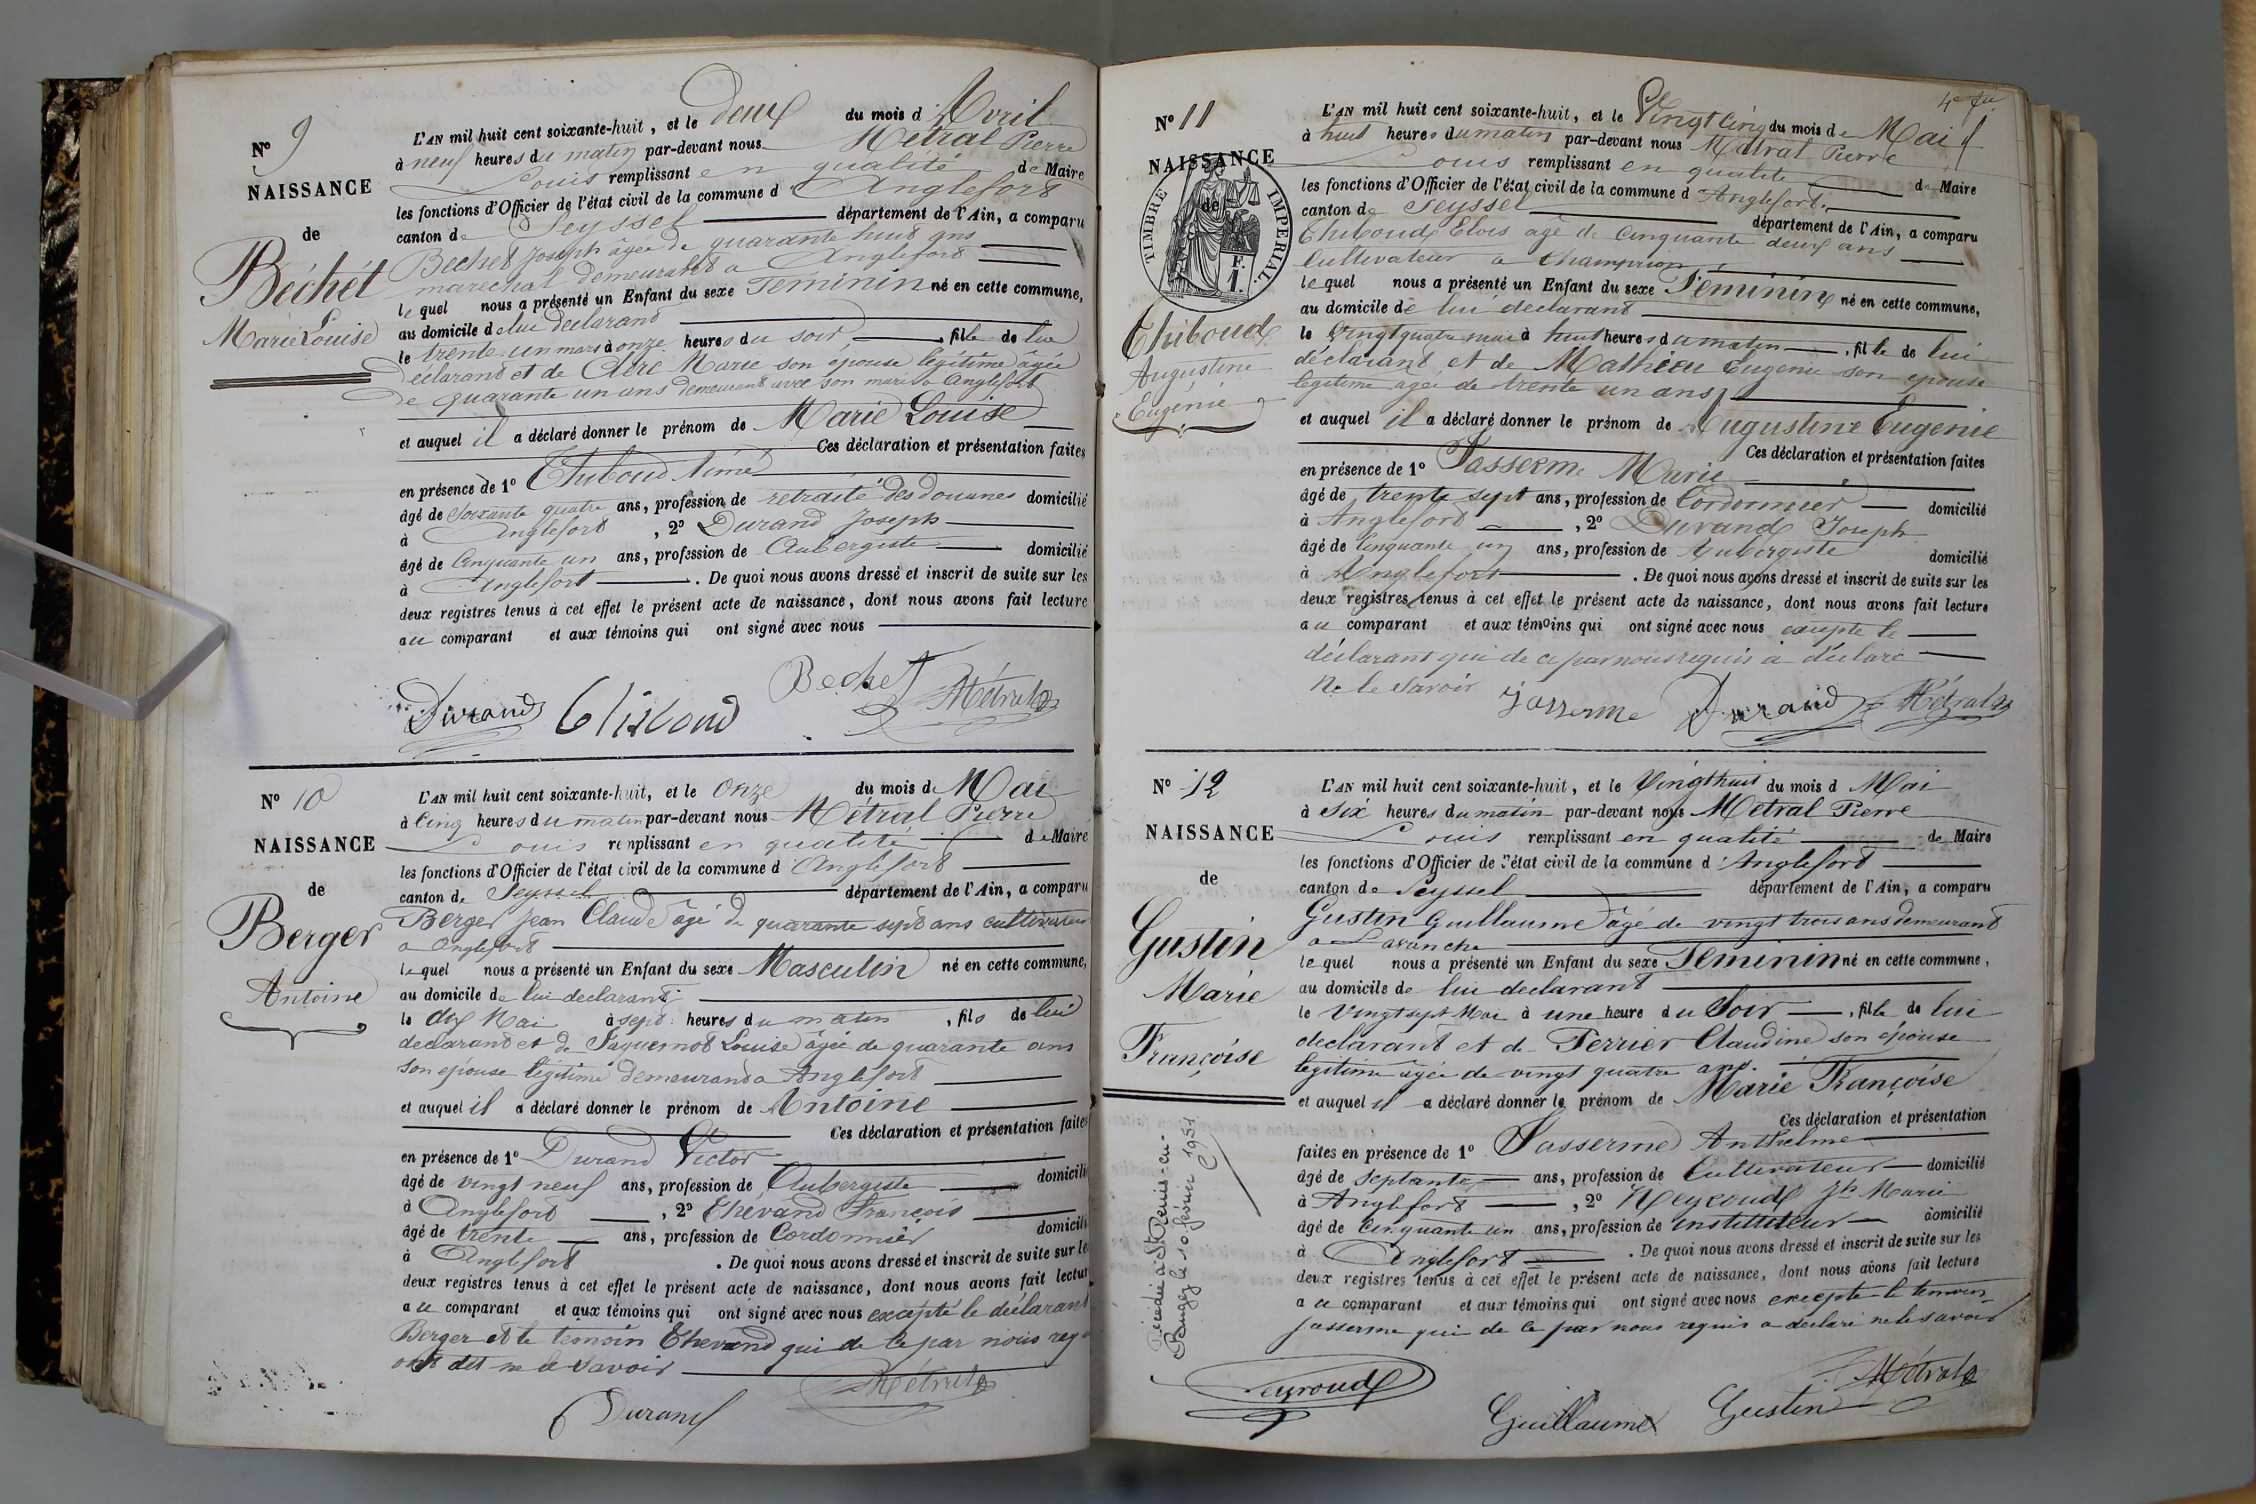 N° 9
NAISSANCE
de
Béchét
Marie Louise
L'AN mil huit cent soixante-huit, et le deux du mois d'Avril
à neuf heures du matin par-devant nous Métral Pierre
Louis remplissant en qualité de Maire
les fonctions d'Officier de l'état civil de la commune d'Anglefort
canton de Seyssel département de l'Ain, a comparu
Bechet Joseph âgée de quarante huit ans
marechal demeurant a Anglefort
le quel nous a présenté un Enfant du sexe Féminin né en cette commune,
au domicile de lui declarant
le trente un mars à onze heures du soir, fille de lui
déclarant et de Clerc Marie son épouse légitime âgée
de quarante un ans demeurant avec son mari a Anglefort
et auquel il a déclaré donner le prénom de Marie Louise
Ces déclaration et présentation faites
en présence de 1° Thiboud Aimé
âgé de soixante quatre ans, profession de retraité des douanes domicilié
à Anglefort, 2° Durand Joseph
âgé de Cinquante un ans, profession de Aubergiste domicilié
à Anglefort. De quoi nous avons dressé et inscrit de suite sur les
deux registres tenus à cet effet le présent acte de naissance, dont nous avons fait lecture
au comparant et aux témoins qui ont signé avec nous
Bechet
Durand Thiboud Métral
N° 10
NAISSANCE
de
Berger
Antoine
L'AN mil huit cent soixante-huit, et le Onze du mois de Mai
à Cinq heures du matin par-devant nous Métral Pierre
Louis remplissant en qualité de Maire
les fonctions d'Officier de l'état civil de la commune d'Anglefort
canton de Seyssel département de l'Ain, a comparu
Berger Jean Claude âgé de quarante sept ans cultivateur
a Anglefort
le quel nous a présenté un Enfant du sexe Masculin né en cette commune,
au domicile de lui declarant
le dix Mai à sept heures du matin, fils de lui
declarant et de Louise âgée de quarante ans
son épouse légitime demeurant a Anglefort
et auquel il a déclaré donner le prénom de Antoine
Ces déclaration et présentation faites
en présence de 1° Durand Victor
âgé de vingt neuf ans, profession de Aubergiste domicilié
à Anglefort, 2° Thévand François
âgé de trente ans, profession de Cordonnier domicilié
à Anglefort. De quoi nous avons dressé et inscrit de suite sur les
deux registres tenus à cet effet le présent acte de naissance, dont nous avons fait lecture
au comparant et aux témoins qui ont signé avec nous excepté le déclarant
Berger et le temoin Thevand qui de ce par nous req
ont dit ne le savoir
Métral
Durand
4e
N° 11
NAISSANCE
de
TIMBRE IMPERIAL.
F.
1.
Thiboud
Augustine
Eugénie
L'AN mil huit cent soixante-huit, et le Vingt cinq du mois de Mai
à huit heures du matin par-devant nous Métral Pierre
Louis remplissant en qualité de Maire
les fonctions d'Officier de l'état civil de la commune d'Anglefort
canton de Seyssel département de l'Ain, a comparu
Thiboud Elois agé de Cinquante deux ans
Cultivateur a Champrion
le quel nous a présenté un Enfant du sexe Féminin né en cette commune,
au domicile de lui declarant
le Vingt quatre mai à huit heures du matin, fille de lui
déclarant et de Mathieu Eugenie son epouse
legitime agée de trente un ans
et auquel il a déclaré donner le prénom de Augustine Eugenie
Ces déclaration et présentation faites
en présence de 1° Jasserme Marie
âgé de trente sept ans, profession de Cordonnier domicilié
à Anglefort, 2° Durand Joseph
âgé de Cinquante un ans, profession de Aubergiste domicilié
à Anglefort. De quoi nous avons dressé et inscrit de suite sur les
deux registres tenus à cet effet le présent acte de naissance, dont nous avons fait lecture
au comparant et aux témoins qui ont signé avec nous excepte le
déclarant qui de ce par nous requis a déclaré
ne le savoir
Jasserme Durand Métral
N° 12
NAISSANCE
de
Gustin
Marie
Françoise
Décédée a St Denis-en-
Bugey le 10 fevrier 1951
L'AN mil huit cent soixante-huit, et le Vingt huit du mois d Mai
à six heures du matin par-devant nous Métral Pierre
Louis remplissant en qualité de Maire
les fonctions d'Officier de l'état civil de la commune d'Anglefort
canton de Seyssel département de l'Ain, a comparu
Gustin Guillaume âgé de vingt trois ans demeurant
a Lavanche
le quel nous a présenté un Enfant du sexe Féminin né en cette commune,
au domicile de lui declarant
le Vingt sept Mai à une heure du Soir, fille de lui
declarant et de Perrier Claudine son épouse
legitime agée de vingt quatre ans.
et auquel il a déclaré donner le prénom de Marie Françoise
Ces déclaration et présentation
faites en présence de 1° Jasserme Anthelme
âgé de septante ans, profession de Cultivateur domicilié
à Anglefort, 2° Neyroud Jh Marie
âgé de Cinquante un ans, profession de instituteur domicilié
à Anglefort. De quoi nous avons dressé et inscrit de suite sur les
deux registres tenus à cet effet le présent acte de naissance, dont nous avons fait lecture
au comparant et aux témoins qui ont signé avec nous excepte le temoin
Jasserme qui de ce par nous requis a declaré ne le savoir
Neyroud Guillaume Gustin Métral